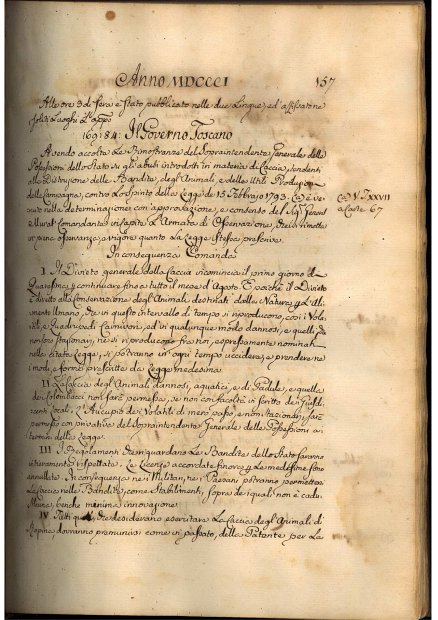 Anno MDCCCI
157
Alle ore 3 di sera è stato pubblicato nelle due Lingue, ed affissatone
soliti Luoghi l'appo
169. 84. Il Governo Toscano
Avendo accolte Le Rimostranze del Sopraintendente Generale delle
Possessioni dello Stato su gl'abusi introdotti in materia di Caccia, tendenti
alla Distruzione delle Bandite, degl'Animali e delle Utili Produzioni
della Campagna, contro Lo Spirito della Legge de' 15 Febbrajo 1793. è ve
nuto nella determinazione con approvazione, e consenso del Sig. General
Murat Comandante in Capite L'Armata di Osservazione, che si rimetta
in piena osservanza, a rigore quanto La Legge stessa prescrive.
a Carte 67
In conseguenza Comanda
I Il Divieto generale della Caccia ricomincia il primo giorno di
Quaresima, e continuare fino a tutto il mese d'Agosto. E poichè il Divieto
è diretto alla Conservazione degl'Animali destinati dalla Natura all'Ali
mento Umano, che in questo intervallo di tempo si riproducono, così i Vola
tili, e Quadrupedi Carnivori, ed in qualunque modo dannosi, e quelli, che
non sono stazionarj, ne si riproducono fra noi, espressamente nominati
nella citata Legge, si potranno in ogni tempo uccidere, e prendere ne
i modi, e forme prescritte da Legge medesima.
II La Caccia degl'Animali dannosi, aquatici, e di Padule, e quella
dei Colombacci non sarà permessa, se non con facoltà in scritto dei Giusdi
centi Locali. L'Aucupio dei Volatili di mero passo, e non stazionarj sarà
permesso con privative del Sopraintendente Generale delle Possessioni ai
termini della Legge.
III I Regolamenti che riguardano Le Bandite dello Stato saranno
interamente rispettati. Le Licenze accordate finora per Le medesime sono
annullate. In conseguenza ne i Militari, ne i Paesani potranno permettersi
La Caccia nelle Bandite, come Stabilimenti, sopra dei quali non è cadu
ta, benche minima innovazione.
IV Tutti quelli, che desiderano esercitare La Caccia degl'Animali di
Rapina dovranno premunirsi come in passato, della Patente per La